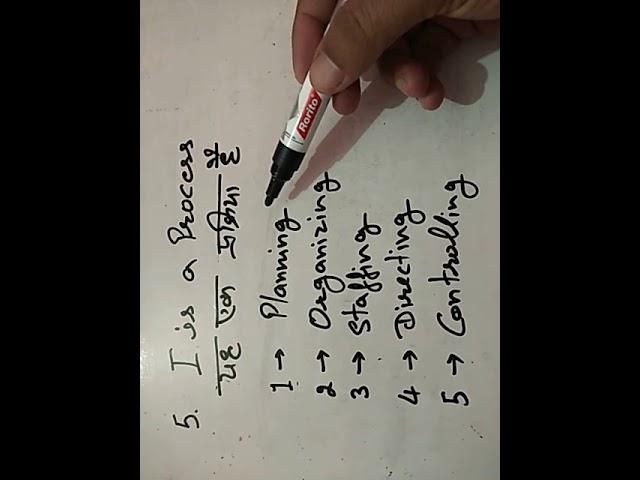 5. I is a Process
यह एक प्रक्रिया है
1 → Planning
2 → Organizing
3 → Staffing
4 → Directing
5 → Controlling
Rorito